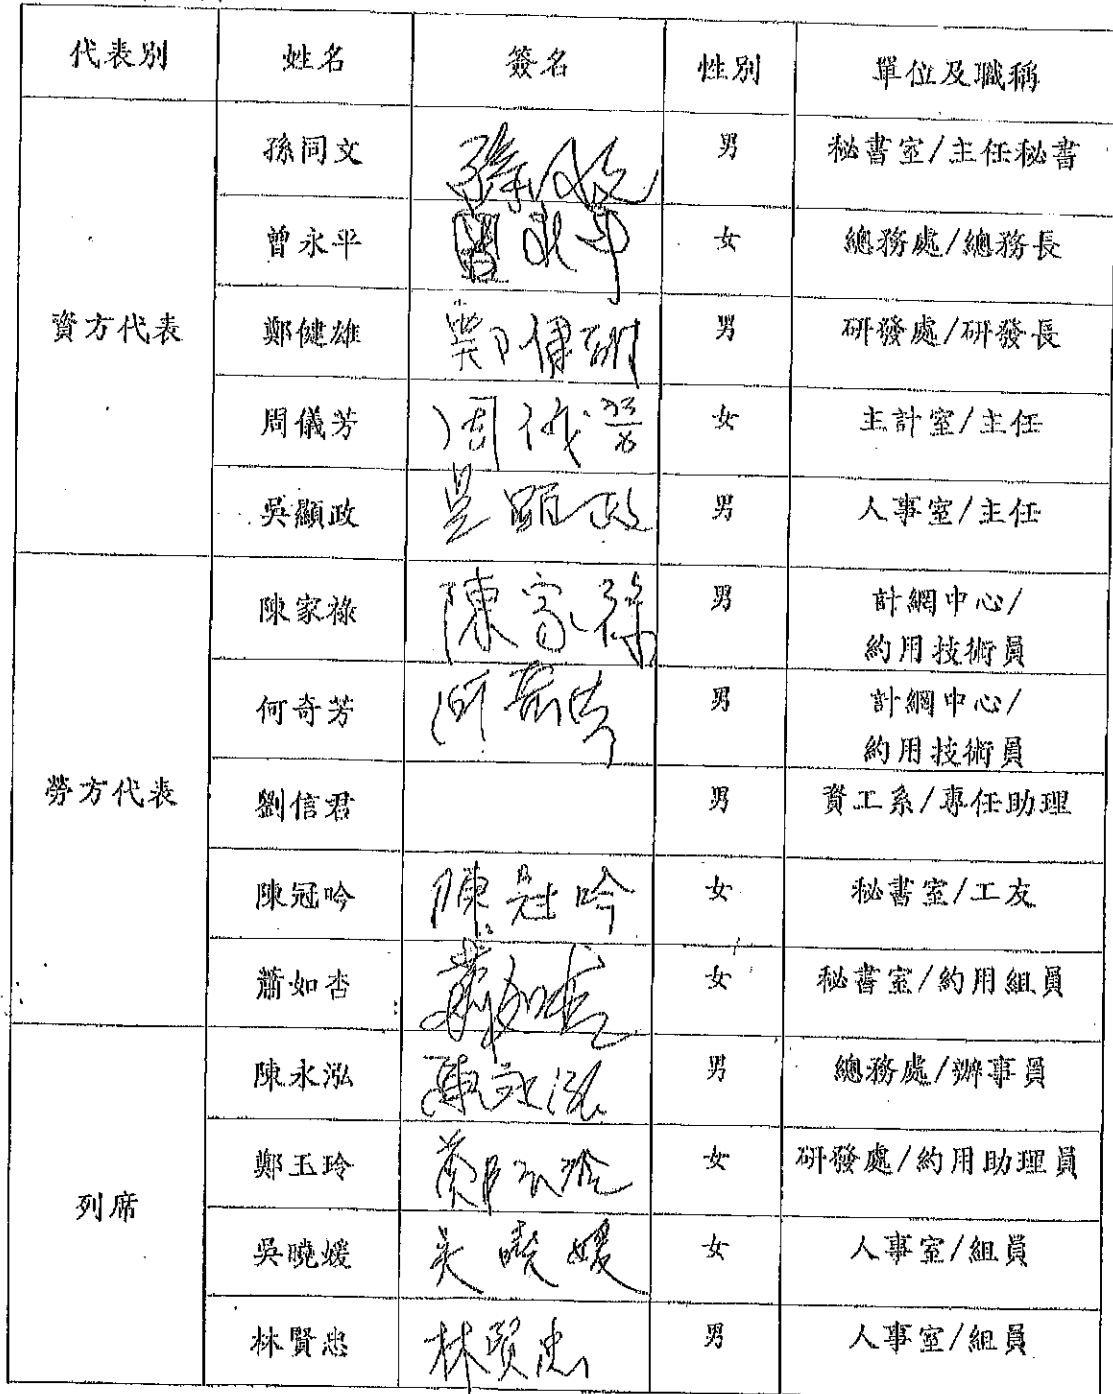 代表別 姓名 簽名 性別 單位及職稱
資方代表
孫同文 男 秘書室/主任秘書
曾永平 曾永平 女 總務處/總務長
鄭健雄 鄭健雄 男 研發處/研發長
周儀芳 周儀芳 女 主計室/主任
吳顯政 吳顯政 男 人事室/主任
勞方代表
陳家祿 陳家祿 男 計網中心/
約用技術員
何奇芳 男 計網中心/
約用技術員
劉信君 男 資工系/專任助理
陳冠吟 陳冠吟 女 秘書室/工友
蕭如杏 蕭如杏 女 秘書室/約用組員
列席
陳永泓 陳永泓 男 總務處/辦事員
鄭玉玲 鄭玉玲 女 研發處/約用助理員
吳曉媛 吳曉媛 女 人事室/組員
林賢忠 林賢忠 男 人事室/組員